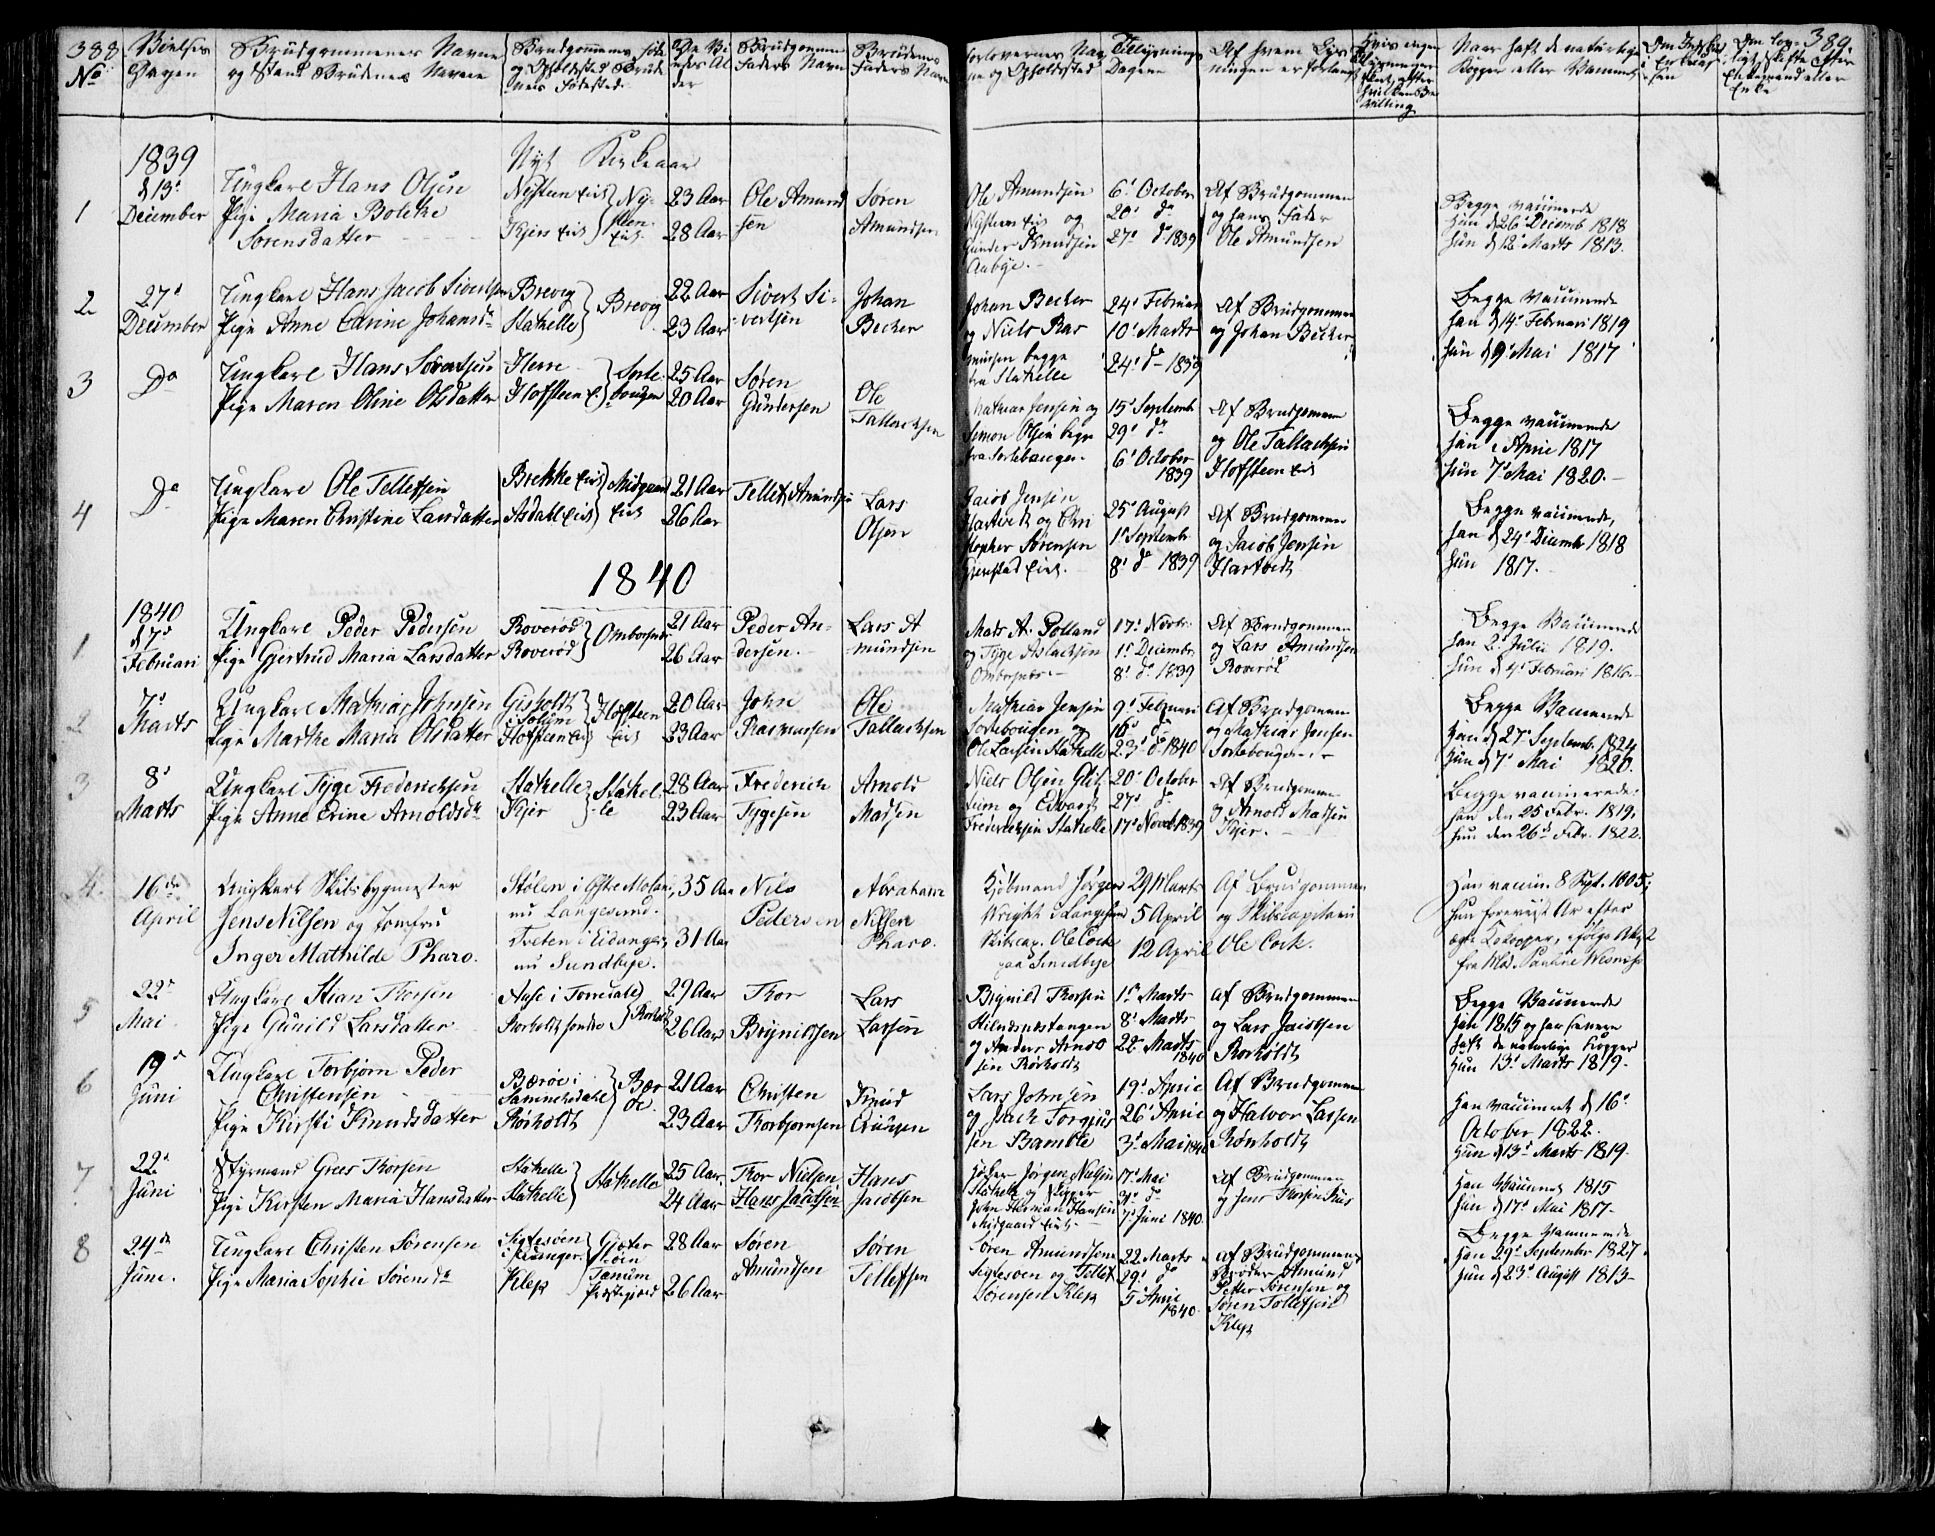 388
No
Vielses
Dagen
Brudgommenes Navne
og Stand Brudenes Navne
Brudgommens føde
og Opholdssted Brude
nes Fødested
Brudgommens
Faders Navn
Brudenes
Faders Navn
Forlovernes Nav
ne og Opholdssted
Tillysnings
Dagene
Af hvem Lys
ningen er forlangt
Naar haft de naturlige
Kopper eller Vaccinert
389
1839
Nyt Kirkeaar
1
d 13
December
Ungkarl Hans Olsen
Pige Maria Boletke
Sørensdatter
Nysteen Eie
Kjær Eie
Ny-
steen
Eie
23 Aar
28 Aar
Ole Amund
sen
Søren
Amundsen
Ole Amundsen
Nysteen Eie og
Gunder Knudsen
Aabye.
6 October
20 do
27 do 1839
Af Brudgommen
og hans Fader
Ole Amundsen
Begge vaccinerede
Han d 26 Decemb 1818
Hun d 12 Marts 1813.
2
27
December
Ungkarl Hans Jacob Sivertsen
Pige Anne Carine Johansdr
Brevig
Stathelle
Brevig
22 Aar
23 Aar
Sivert Si-
vertsen
Johan
Becker
Johan Becker
og Niels Ras
mussen begge
fra Stathelle
24 Februar
10 Marts
24 do 1839
Af Brudgommen
og Johan Becker
Begge vaccinerede
Han d 14 Februari 1819
Hun d 9 Mai 1817
3
Do
Ungkarl Hans Sørensen
Pige Maren Oline Olsdatter
Herre
Hofsteen E.
Sorte-
bougen
25 Aar
20 Aar
Søren
Gundersen
Ole
Tallachsen
Mathias Jensen og
Simon Olsen begge
fra Sortebaugen.
15 Septembr
29 do
6 October
1839
Af Brudgommen
og Ole Tallachsen
Hofsteen Eie
Begge vaccinerede
Han i April 1817
Hun 7 Mai 1820.
4
Do
Ungkarl Ole Tellefsen
Pige Maren Christine Larsdatter
Brekke Eie
Asdahl Eie
Midgaard
Eie
21 Aar
26 Aar
Tellef Amundsen
Lars
Olsen
Jacob Jensen
Hartvedt og Chri
stopher Sørensen
25 August
1 Septembr
8 do 1839
Af Brudgommen
og Jacob Jensen
Hartvedt
Begge vaccinerede,
Han d 24 Decemb 1818
Hun 1817.
1840
1840
1
d 7
Februari
Ungkarl Peder Pedersen
Pige Gjertrud Maria Larsdatter
Roverød
Roverød
Omborsnes
21 Aar
26 Aar
Peder An-
dersen.
Lars A
mundsen
Mads A. Polland
og Tyge Aslachsen
Omborsnes
17 Novbr.
1 Decembr
8 do 1839
Af Brudgommen
og Lars Amundsen
Roverød
Begge Vaccinerede
Han 2 Julii 1819.
Hun d 4 Februari 1816.
2
7
Marts
Ungkarl Mathias Johnsen
Pige Marthe Maria Olsdatter
Gisholdt
i Solum
Hofsteen Eie
Hofsteen
Eie
20 Aar
23 Aar
John
Rasmussen
Ole
Tallachsen
Mathias Jensen
Sortebougen og
Ole Larsen Stathelle
9 Februari
16 do
23 do 1840
Af Brudgommen
og Mathias Jensen
Sortebougen
Begge Vaccinerede
Han d 27 Septemb. 1824
Hun d 7 Mai 1820.
3
8
Marts
Ungkarl Tyge Frederichsen
Pige Anne Trine Arnoldsdr
Stathelle
Kjær
Stathel-
le
28 Aar
23 Aar
Frederich
Tygesen
Arnold
Madsen
Edvard
Frederichsen Stathelle
20 October
27 do
17 Novbr 1839
Af Brudgommen
og Arnold Madsen
Kjær.
Begge vaccinerede:
Han den 25 Febr. 1819.
Hun den 26 Febr. 1822.
4.
16de
April
Ungkarl Skibsbygmester
Jens Nilsen og Jomfru
Inger Mathilde Pharo.
nu Langesund.
Tveten i Eidanger,
nu Sundbye.
35 Aar
31 Aar
Nils
Pedersen
Abraham
Nilsen
Pharo.
Kjøbmand Jørgen
Wright i Langesund
Skibscap. Ole Cock
paa Smedbye
29 Marts
5 April
12 April
Af Brudgommen
og Skibscapitain
Ole Cock.
Han vaccin. 8 Sept. 1805;
Hun foreviist Ar efter
ægte Kokopper, ifølge Attest
5
22
Mai
Ungkarl Stian Thorsen
Pige Gunild Larsdatter
Aase i Torredal
Rorholdtsondre
Rorholdt
29 Aar
26 Aar
Thor
Brynildsen
Lars
Larsen
Brynild Thorsen
og Anders Arnol
sen Rørholdt
1 Marts
8 Marts
22 Marts
1840
Af Brudgommen
og Lars Jacobsen
Rorholdt
Begge Vaccinerede
Han 1815 og har senere
haft de naturlige Kopper
Hun 13 Marts 1819.
6
19
Juni
Ungkarl Torbjørn Peder
Christensen
Pige Kirsti Knudsdatter
Bærøe i
Sannekedahl
Rørholdt
Bær
øe.
21 Aar
23 Aar
Christen
Thorbjornsen
Knud
Lars Johnsen
og Isach Torgius
sen Bamble
19 April
26 April
3 Mai 1840
Af Brudgommen
og Halvor Larsen
Rønholdt
Han vaccineret d 16
October 1822.
Hun d 13 Marts 1819.
7
22
Juni
Styrmand Grees Thorsen
Pige Kirsten Maria Hansdatter
Stathelle
Stathelle
Stathelle
25 Aar.
24 Aar
Thor Nielsen
Hans Jacobsen
Hans
Jacobsen
Jørgen Nielsen
Stathelle og Skipper
John Herman Hansen
Midgaard Eie
17 Mai
do
7 Juni 1840.
Af Brudgommen
og Jens Thorsen
Han Vaccineret 1815
Hun d 17 Mai 1817.
8
24de
Juni.
Ungkarl Christen Sørensen
Pige Maria Sophie Sørensdr
Sigtesøen
Klep
Gjeter
øen
Tanum
Præstegjeld
28 Aar
26 Aar
Søren
Amundsen
Søren
Tellefsen
Søren Amundsen
Sigtesøen og Tellef
Sørensen Klep
22 Marts
29 do
5 April
1840.
Af Brudgommens
Broder Amund
Petter Sørensen og
Søren Tollefsen
Klep
Begge Vaccinerede
Han 29 September 1827.
Hun d 23 August 1813